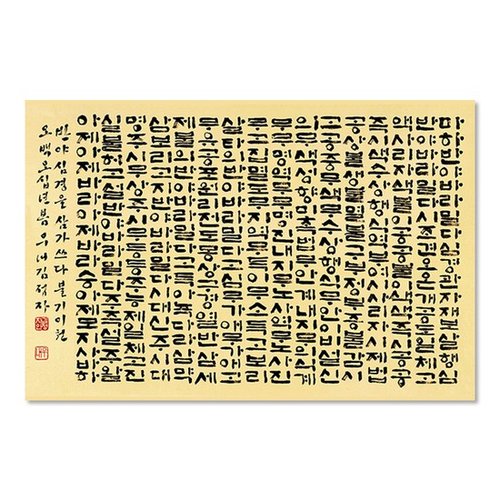 마하반야바라밀다심경관자재보살행심
반야바라밀다시조견오온개공도일체고
액사리자색불이공공불이색색즉시공공
즉시색수상행식역부여시사리자시제법
공상불생불멸불구부정부증불감시고
공중무색무수상행식무안이비설신
의무색성향미촉법무안계내지무의식계
무무명역무무명진내지무노사역무노사
진무고집멸도무지역무득이무소득고보리
살타의반야바라밀다고심무가애무가애고
무유공포원리전도몽상구경열반삼세
제불의반야바라밀다고득아뇩다라삼먁
삼보리고지반야바라밀다시대신주시대
명주시무상주시무등등주능제일체고진
실불허고설반야바라밀다주즉설주왈
아제아제바라아제바라승아제모지사바하
반야심경을 삼가 쓰다 불기 이천
오백오십년 봄